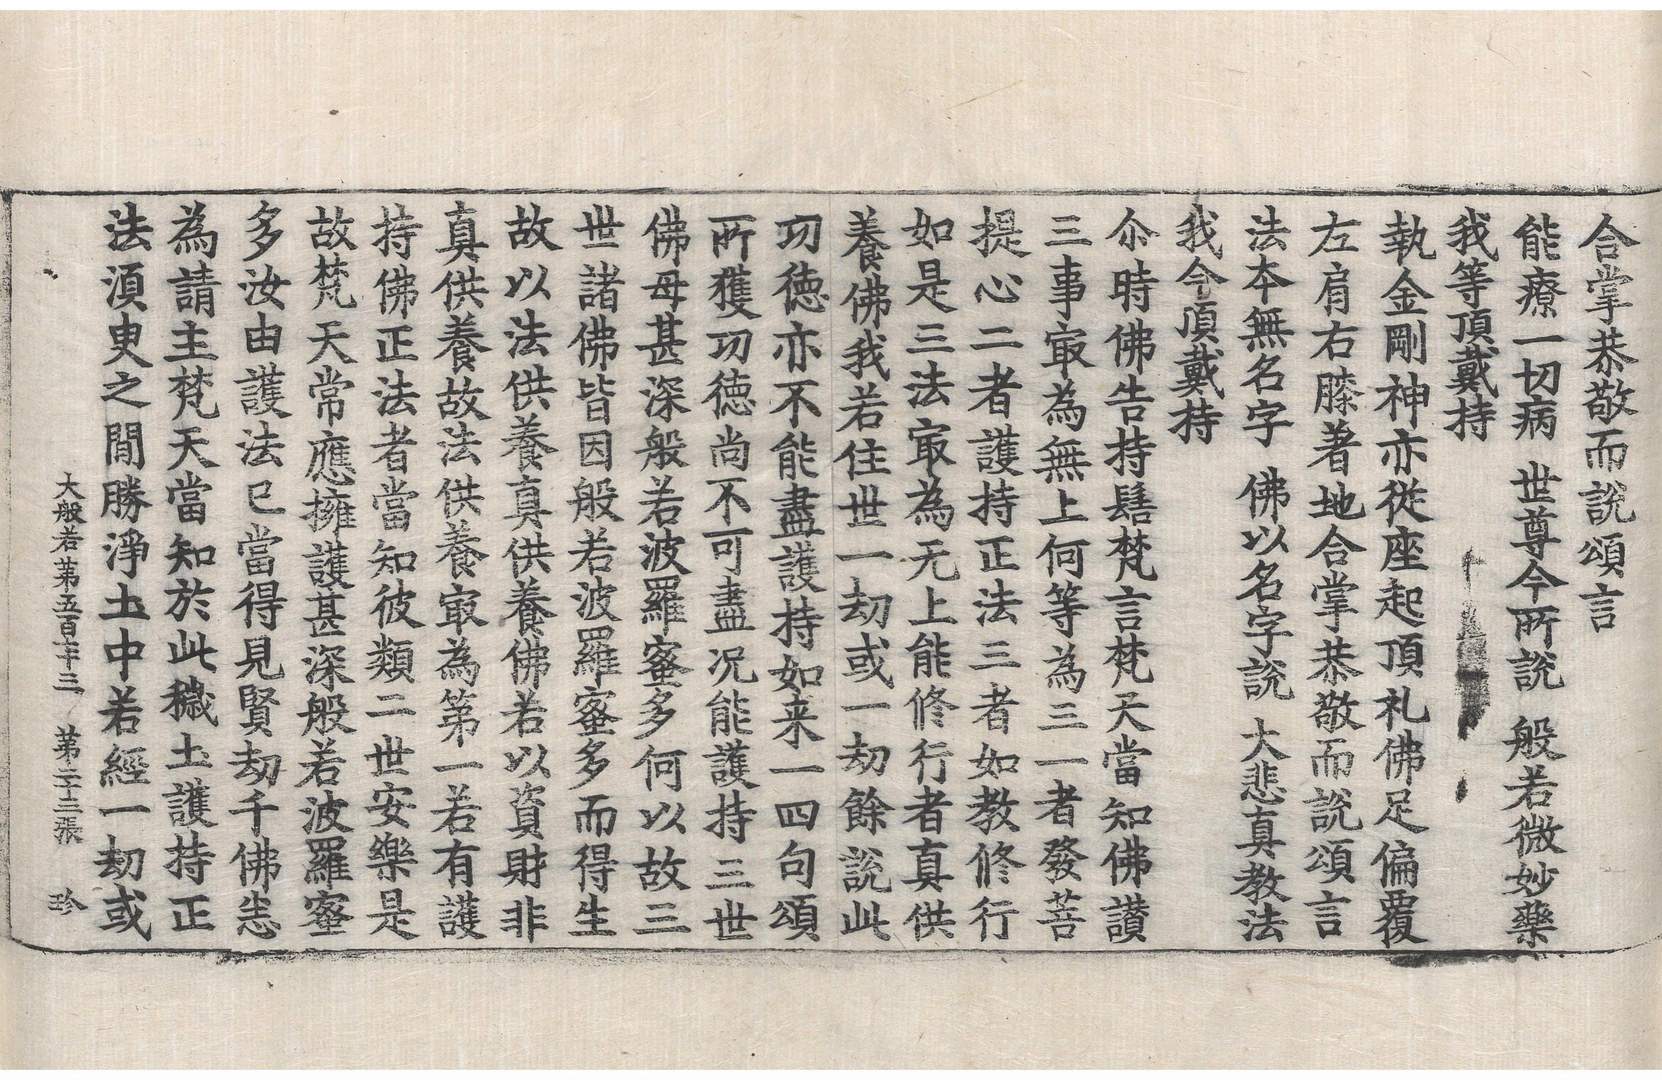 合掌恭敬而說頌言
能療一切病 世尊今所說 般若微妙藥
我等頂戴持
執金剛神亦從座起頂礼佛足偏覆
左肩右膝著地合掌恭敬而說頌言
法本無名字 佛以名字說 大悲真教法
我今頂戴持
尒時佛告持髻梵言梵天當知佛讚
三事㝡為無上何等為三一者發菩
提心二者護持正法三者如教修行
如是三法㝡為无上能修行者真供
養佛我若住世一劫或一劫餘說此
功德亦不能盡護持如来一四句頌
所獲功德尚不可盡况能護持三世
佛母甚深般若波羅蜜多何以故三
世諸佛皆因般若波羅蜜多而得生
故以法供養真供養佛若以資財非
真供養故法供養㝡為第一若有護
持佛正法者當知彼類二世安樂是
故梵天常應擁護甚深般若波羅蜜
多汝由護法已當得見賢劫千佛恙
為請主梵天當知於此穢土護持正
法須臾之間勝淨土中若經一劫或
大般若第五百七十三 第二十三張 珍